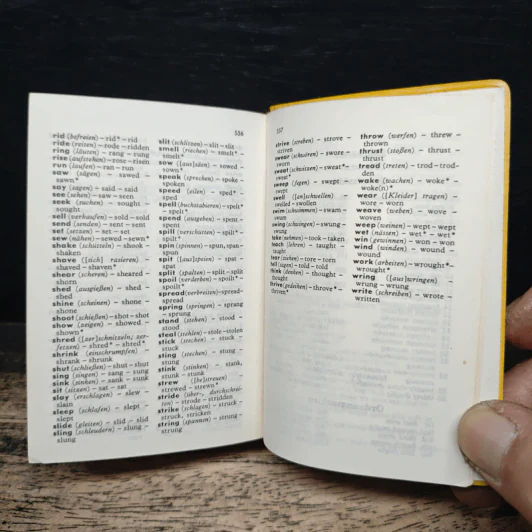 556
rid (befreien) – rid* – rid
ride (reiten) – rode – ridden
ring (läuten) – rang – rung
rise (aufstehen) – rose – risen
run (laufen) – ran – run
saw (sägen) – sawed –
sawn*
say (sagen) – said – said
see (sehen) – saw – seen
seek (suchen) – sought –
sought
sell (verkaufen) – sold – sold
send (senden) – sent – sent
set (setzen) – set – set
sew (nähen) – sewed – sewn*
shake (schütteln) – shook –
shaken
shave ([sich] rasieren) –
shaved – shaven*
shear (scheren) – sheared –
shorn
shed (ausgießen) – shed –
shed
shine (scheinen) – shone –
shone
shoot (schießen) – shot – shot
show (zeigen) – showed –
shown*
shred ([zer]schnitzeln; zer-
fetzen) – shred* – shred*
shrink (einschrumpfen) –
shrank – shrunk
shut (schließen) – shut – shut
sing (singen) – sang – sung
sink (sinken) – sank – sunk
sit (sitzen) – sat – sat
slay (erschlagen) – slew –
slain
sleep (schlafen) – slept –
slept
slide (gleiten) – slid – slid
sling (schleudern) – slung –
slung
slit (schlitzen) – slit – slit
smell (riechen) – smelt* –
smelt*
sow ([aus]säen) – sowed –
sown*
speak (sprechen) – spoke –
spoken
speed (eilen) – sped* –
sped*
spell (buchstabieren) – spelt*
– spelt*
spend (ausgeben) – spent –
spent
spill (verschütten) – spilt* –
spilt*
spin (spinnen) – spun, span –
spun
spit ([aus]speien) – spat –
spat
split (spalten) – split – split
spoil (verderben) – spoilt* –
spoilt*
spread (verbreiten) – spread –
spread
spring (springen) – sprang
– sprung
stand (stehen) – stood –
stood
steal (stehlen) – stole – stolen
stick (stecken) – stuck –
stuck
sting (stechen) – stung –
stung
stink (stinken) – stank,
stunk – stunk
strew ([be]streuen) –
strewed – strewn*
stride (über-, durchschrei-
ten) – strode – stridden
strike (schlagen) – struck –
struck, stricken
string (spannen) – strung –
strung
557
strive (streben) – strove –
striven
swear (schwören) – swore –
sworn
sweat (schwitzen) – sweat* –
sweat*
sweep (fegen) – swept –
swept
swell ([an]schwellen) –
swelled – swollen
swim (schwimmen) – swam –
swum
swing (schwingen) – swung –
swung
take (nehmen) – took – taken
teach (lehren) – taught –
taught
tear (ziehen) – tore – torn
tell (sagen) – told – told
think (denken) – thought –
thought
thrive (gedeihen) – throve* –
thriven*
throw (werfen) – threw –
thrown
thrust (stoßen) – thrust –
thrust
tread (treten) – trod – trod-
den
wake (wachen) – woke* –
woke(n)*
wear ([Kleider] tragen) –
wore – worn
weave (weben) – wove –
woven
weep (weinen) – wept – wept
wet (nässen) – wet* – wet*
win (gewinnen) – won – won
wind (winden) – wound –
wound
work (arbeiten) – wrought* –
wrought*
wring ([aus]wringen) –
wrung – wrung
write (schreiben) – wrote –
written